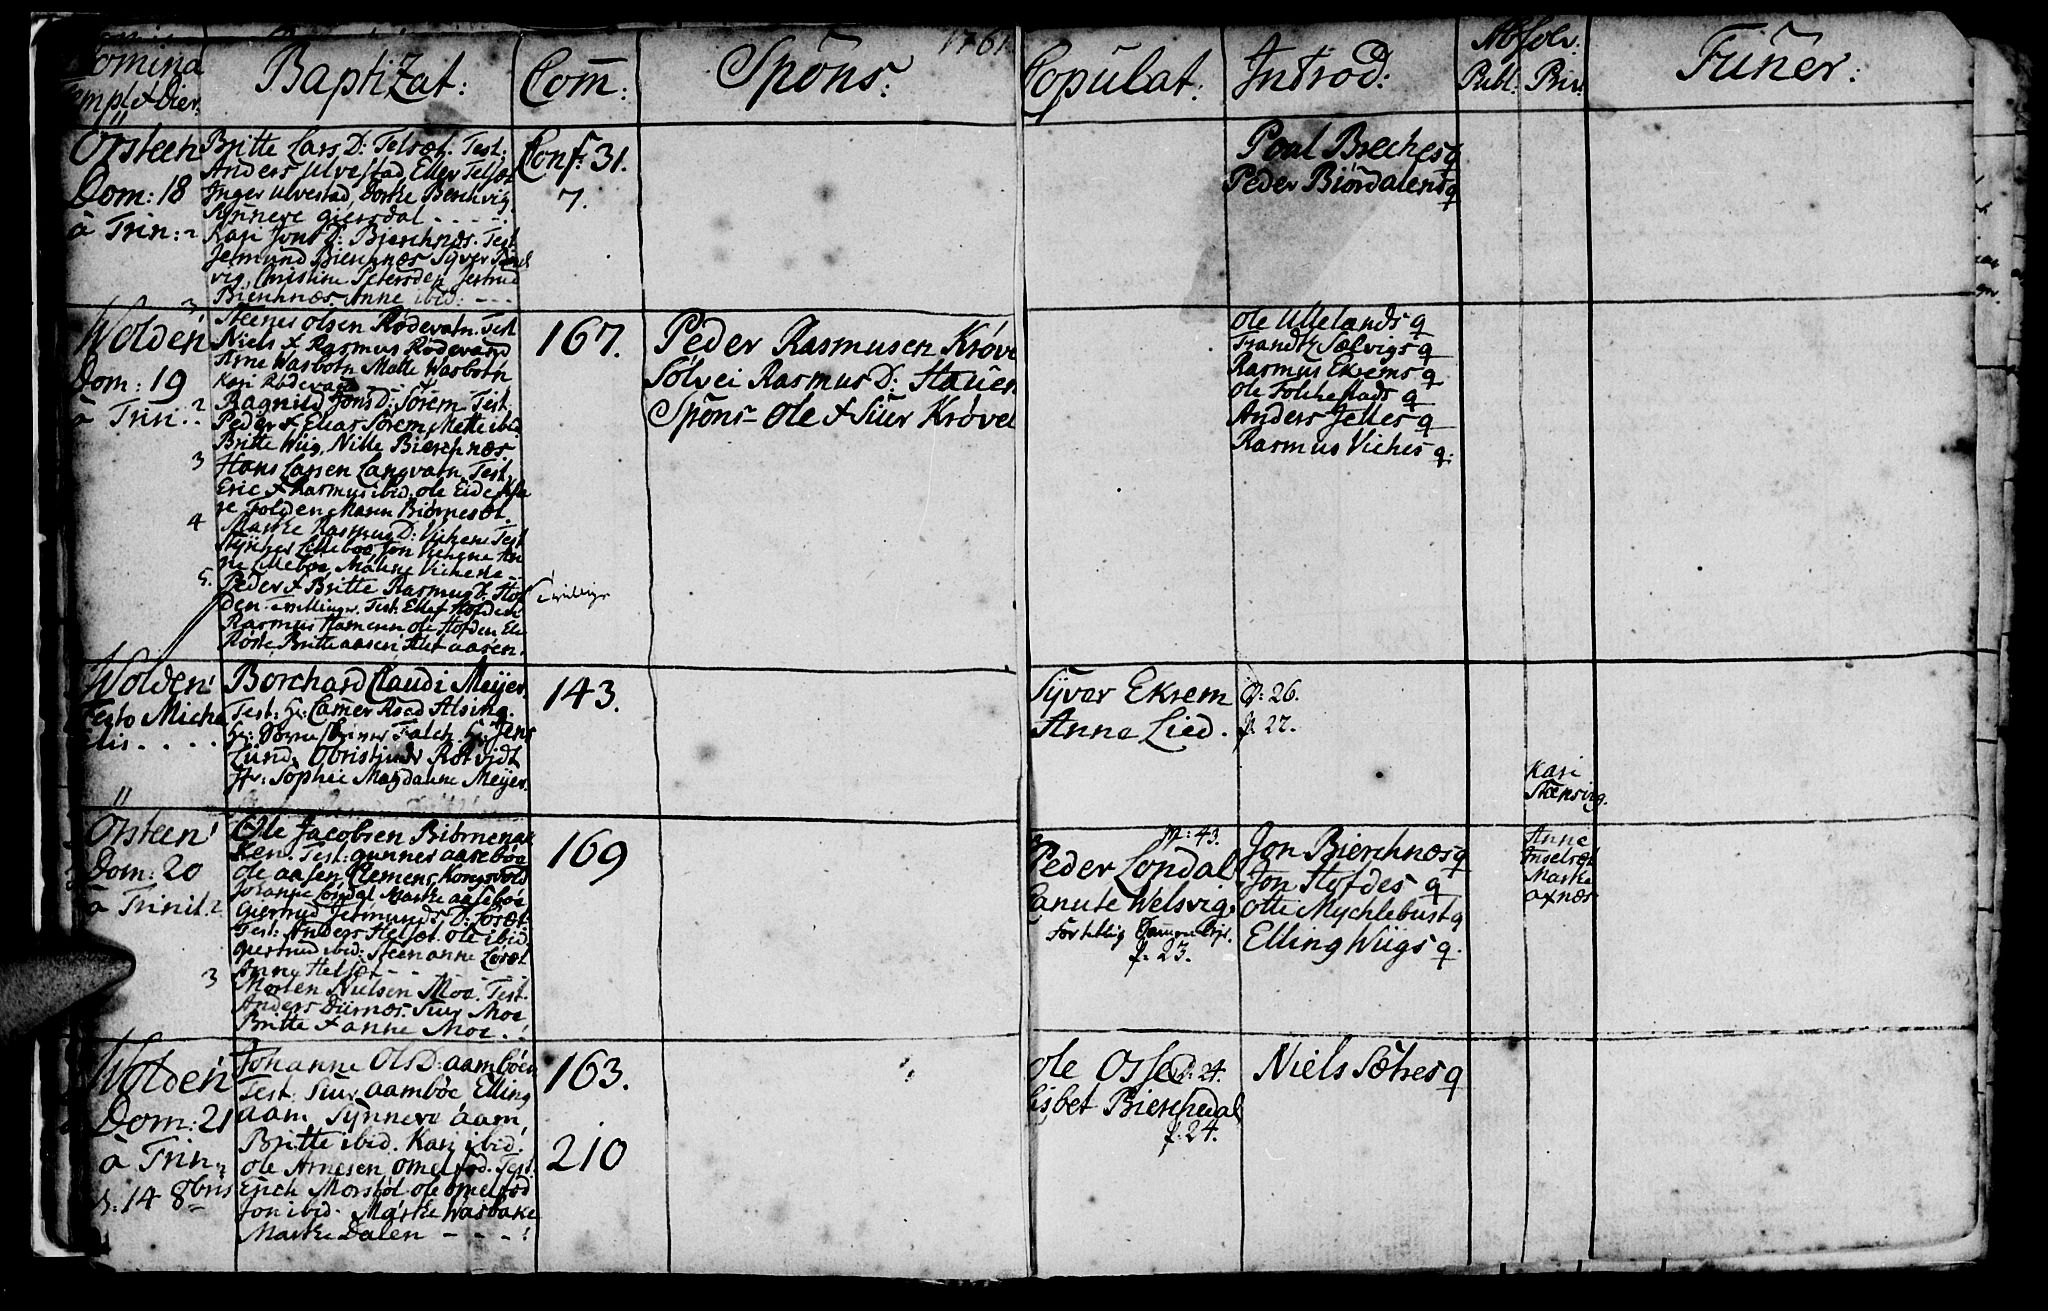 1761.
Nomina
Templ & Dier.
Baptizat:
Com:
Spons:
Copulat:
Introd:
Absolv:
Publ: Priv:
Funer:
Örsteen
Dom: 18
à Trin:
Britte Lars D: Telsæt. Test:
Anders Ulvestad, Eller Telsæt
Inger Ulvestad, Dorthe Berchvig,
Synneve giersdal - - - -
Kari Jons D: Bierchnæs. Test
Jermund Bierchnæs Syver
vig, Christine Petersden, Jertrud
Bierchnæs. Anne ibid: - - -
Conf: 31.
7.
Poul Brechesq
Peder Biørdalensq
Wolden
Dom: 19
à Trin:
3
Steener Olsen Rødevatn. Test
Niels & Rasmus Rødevatn
Arne Wasbotn Mette Wasbotn
Kari Rødevatn
Ragnild Jons D: Sørem. Test.
Peder & Elias Sørem, Mette ibid
Britte Wiig, Nille Bierchnæs
3 Hans Larsen Langvatn Test.
Eric & Rasmus ibid. ole Eide
Folden Maren Biørnesæt.
4 Marthe Rasmus D: Vichene Test
Lillebøe Jon Vichene An
ne Lillebøe, Malene Vichene
5. Peder & Britte Rasmus D: Hof
den. Tvillinger. Test: Ellef Hofden
Rasmus Hamenn ole Hofden Ele
Røste, Britte aasen, Alet aasen.
167.
Peder Rasmusen Krøve
Sølvei Rasmus D: Staven
Spons- Ole & Siur Krøvel
Ole Ullelands q
Trandz Sælvigs q
Rasmus Ekrems q
Ole Folkestads q
Anders Jelles q
Rasmus Viches q.
Wolden
Festo Micha
elis. . . . .
Borchard Claudi Meijer
Test: hr: Camer Raad Alsing.
hr: Falch. hr: Jens
Lund, Obristinde Rotvidt
Fr: Sophie Magdalene Meijer.
143.
Syver Ekrem D: 26.
Anne Lied. f. 22.
Kari
Stensvig.
Örsteen
Dom: 20
à Trinit:
Ole Jacobsen Biørnenak
ken. Test: gunner aasebøe
ole aasen, Clemens Kongsvold
Johanne Londal Marthe aasebøe
Giertrud Jermunds D: Losæt.
Test: Anders Helsæt. ole ibid.
giertrud ibid: Steen anne Losæt
Anne Helsæt - - - - -
3 Morten Nielsen Moe. Test.
Anders Diernæs. Siur Moe
Britte & anne Moe. .
169
M: 43.
Peder Londal
Canute Welsvig.
f. 23.
Jon Bierchnæsq
Jon Hofdes q
Otte Mychlebustq
Elling Wiigs q.
Anne
Inselsæt
Marthe
axnæs
Wolden
Dom: 21
à Trin
d: 14 8bris
Johanne Ols D: aambøe
Test. Siur aambøe Elling
aam. Synneve aam,
Britte ibid. Kari ibid.
Ole Arnesen Omelfod. Test.
Erich Morstøl ole omelfod
Jon ibid. Marthe Wasbake
Marthe Dalen - - - -
163.
210
Ole Osse D: 24.
Lisbet Bierchedal
f: 24.
Niels Sætres q